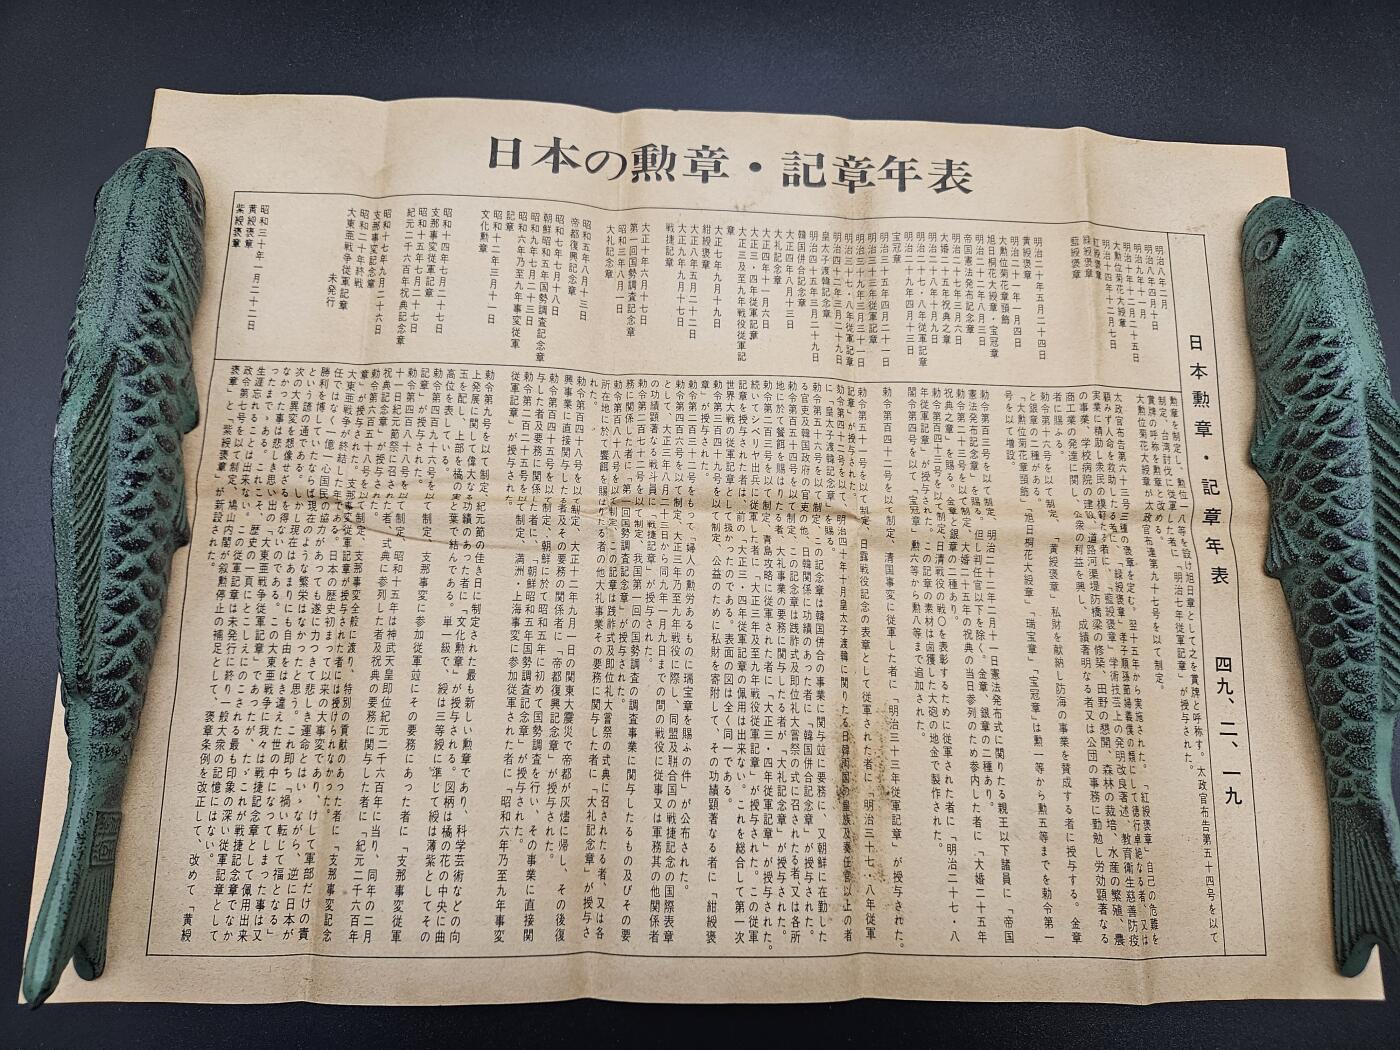 日本の勲章・記章年表
日本勲章・記章年表　四九、二、一九
明治八年二月
明治八年四月十日
明治九年十一月
明治十年十二月二十五日
大勲位菊花大綬章
明治十四年十二月七日
紅綬褒章
緑綬褒章
藍綬褒章
明治二十年五月二十四日
黄綬褒章
明治二十一年一月四日
大勲位菊花章頸飾
旭日桐花大綬章・宝冠章
明治二十二年八月三日
帝国憲法発布記念章
明治二十七年三月六日
大婚二十五年祝典之章
明治二十八年十月九日
明治二十九年四月十三日
宝冠章
明治三十五年四月二十一日
明治三十三年従軍記章
明治三十九年三月三十一日
明治三十七・八年従軍記章
明治四十二年三月二十九日
皇太子渡韓記念章
明治四十五年三月二十九日
韓国併合記念章
大正四年八月十三日
大礼記念章
大正四年十一月六日
大正三・四年従軍記章
大正三年及至九年戦役従軍記章
大正七年九月十九日
紺綬褒章
大正八年五月二十二日
大正九年九月十七日
戦捷記章
大正十年六月十七日
第一回国勢調査記念章
昭和三年八月一日
大礼記念章
昭和五年八月十三日
帝都復興記念章
昭和七年七月十八日
朝鮮昭和五年国勢調査記念章
昭和九年七月二十三日
昭和六年乃至九年事変従軍記章
昭和十二年三月十一日
文化勲章
昭和十四年七月二十七日
支那事変従軍記章
昭和十五年七月二十七日
紀元二千六百年祝典記念章
昭和十七年九月二十六日
支那事変記念章
昭和二十年終戦
大東亜戦争従軍記章
未発行
昭和三十年一月二十二日
黄綬褒章
紫綬褒章
勲章を制定し、勲位一八等を設け旭日章として之を賞牌と呼称す。太政官布告第五十四号を以て
制定、台湾討伐に従軍した者に「明治七年従軍記章」が授与された。
賞牌の呼称を勲章と改める
大勲位菊花大綬章が太政官布達第九十七号を以て制定。
太政官布告第六十三号三種の褒章を定む。翌十五年から実施された。「紅綬褒章」自己の危難を
顧みず人命を救助したる者に、「緑綬褒章」孝子順孫節婦義僕の類にして徳行卓絶なる者、又は
実業に精励し衆民の模範たる者に、「藍綬褒章」学術技芸上の発明改良著述、教育衛生慈善防疫
の事業、学校病院の建設、道路河渠堤防橋梁の修築、田野の墾開、森林の栽培、水産の繁殖、農
商工業の発達に関し、公衆の利益を興し、成績著明なる者又は公団の事務に勤勉し労効顕著なる
者に賜ふる。
「黄綬褒章」私財を献納し防海の事業を賛成する者に授与する。金章
と銀章の二種がある。
「大勲位菊花章頸飾」「旭日桐花大綬章」「瑞宝章」「宝冠章」は勲一等から勲五等までを勅令第一
号を以て増設。
勅令第百三号を以て制定、明治二十二年二月十一日憲法発布式に関りたる親王以下諸員に「帝国
憲法発布記念章」を賜る。但し判任官以下を除く。金章、銀章の二種あり。
勅令第二十三号を以て制定、大婚二十五年の祝典の当日参列のため参内した者に「大婚二十五年
祝典之章」を賜る。金章と銀章の二種あり。
勅令第百四十三号を以て制定、日清戦役の戦〇を表彰するために従軍された者に「明治二十七・八
年従軍記章」が授与された。この記章の素材は鹵獲した大砲の地金で製作された。
閣令第四号を以て「宝冠章」勲六等から勲八等まで追加された。
勅令第百四十二号を以て制定、清国事変に従軍した者に「明治三十三年従軍記章」が授与された。
勅令第五十一号を以て制定、日露戦役記念の表章として従軍された者に「明治三十七・八年従軍
記章」が授与された。
勅令第四十一号を以て、明治四十年十月皇太子渡韓に関りたる日韓両国の皇族及奏任官以上の者
に「皇太子渡韓記念章」を賜る。
勅令第五十六号を以て制定、この記念章は韓国併合の事業に関与並に要務に、又朝鮮に在勤した
る官吏及韓国政府の官吏其の他、日韓関係に功績のあった者に「韓国併合記念章」が授与された。
勅令第百五十四号を以て制定、この記念章は践祚式及即位礼大嘗祭の式に召されたる者又は各所
地に於て饗餌を賜はりたる者、大礼事業の要務に関与したる者が「大礼記念章」が授与された。
勅令第二百三号を以て制定、青島攻略に従軍した者に「大正三・四年従軍記章」が授与された。
続いてシベリア出兵に従軍した者に「大正三年及至九年戦役従軍記章」が授与された。この従軍
記章を授与された者は、前の「大正三・四年従軍記章の佩用は出来ない。これを総合して第一次
世界大戦の従軍記章として扱かったのである。表面の図は全く同一である。
勅令第三百四十九号を以て制定、公益のために私財を寄附して、その功績顕著なる者に「紺綬褒
章」が授与された。
勅令第二百三十二号をもって「婦人の勲労あるものに瑞宝章を賜ふの件」が公布された。
勅令第四百六号を以て制定、大正三年乃至九年戦役に際し、同盟及聯合国の戦捷記念の国際表章
として、大正三年八月二十三日から同九年一月九日までの間の戦役に従事又は軍務其の他関係者
の功績顕著なる戦斗員に「戦捷記章」が授与された。
勅令第二百七十二号を以て制定、我国第一回の国勢調査の調査事業に関与したるもの及びその要
務に関係した者に「第一回国勢調査記念章」が授与された。
勅令第百八十八号を以て制定、この記章は践祚式及即位礼大嘗祭の式典に召されたる者、又は各
所在地に於て饗餌を賜はりたる者の他大礼事業その要務に関与した者に「大礼記念章」が授与さ
れた。
勅令第百四十八号を以て制定、大正十二年九月一日の関東大震災で帝都が灰燼に帰し、その後復
興事業に直接関与したる者及その要務の関係者に「帝都復興記念章」が授与された。
勅令第百四十五号を以て制定、朝鮮に於て昭和五年に初めて国勢調査を行い、その事業に直接関
与した者及要務に関係した者に、「朝鮮昭和五年国勢調査記念章」が授与された。
勅令第二百二十五号を以て制定、満洲・上海事変に参加従軍された者に「昭和六年乃至九年事変
従軍記章」が授与された。
勅令第九号を以て制定、紀元節の佳き日に制定された最も新しい勲章であり、科学芸術などの向
上発展に関して偉大なる功績のあった者に「文化勲章」が授与される。図柄は橘の花の中央に曲
玉を配し、上部を橘の実と葉で結んである。単一級で、綬は三等綬に準じて綬は薄紫としてその
高位を表している。
勅令第四百九十六号を以て制定、支那事変に参加従軍並にその要務にあった者に「支那事変従軍
記章」が授与された。
勅令第四百八十八号を以て制定、昭和十五年は神武天皇即位紀元二千六百年に当り、同年の二月
十一日紀元節祭に召された者、式典に参列した者及祝典の要務に関与した者に「紀元二千六百年
祝典記念章」が授与された。
勅令第六百五十八号を以て制定、支那事変全般に渡り、特別の貢献のあった者に「支那事変記念
章」が授与された。支那事変従軍記章が授与された者には授けられなかった。
大東亜戦争が終結した年である。日本の歴史初まって以来の大事変であり、けして軍部だけの責
任ではなく一億一心国民の協力があっても遂に力つきて悲しき運命とはいゝながら、逆に日本が
勝利を博していたならば現在のような繁栄はなかったと思う。これ即ち「禍い転じて福となる」
という諺の通である。しかし現在はあまりにも自由をはき違えた世の中になってしまった事は又
次の大異変を想像せざるを得ないのである。この大東亜戦争に我々は戦捷記念章として佩用出来
なかった事は悲しき思い出の「大東亜戦争従軍記章」であったが、たゞこれが戦捷記念章でなか
ったまでである。これこそ、歴史の一頁にとこしえにのこされる最も印象の深い従軍記章として
生涯忘れることは出来ない。この従軍記章は未発行に終り一般大衆の記憶にはない。
政令第七号を以て制定、鳩山内閣が叙勲停止の補足として、褒章条例を改正して、改めて「黄綬
褒章」と「紫綬褒章」が新設された。